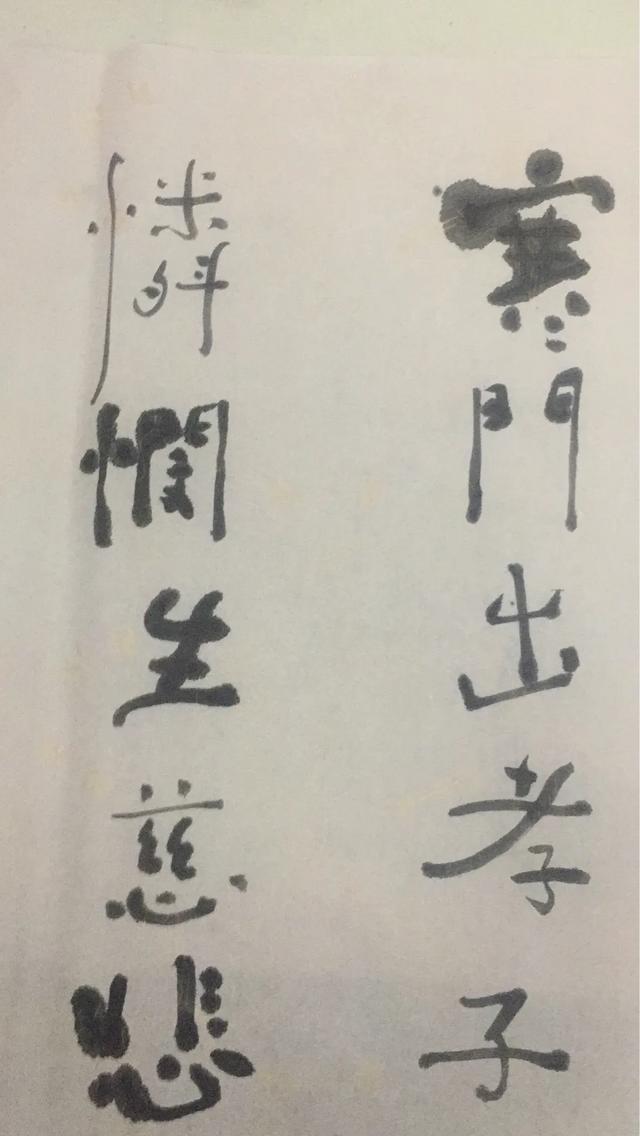 寒門出孝子
憐憫生慈悲